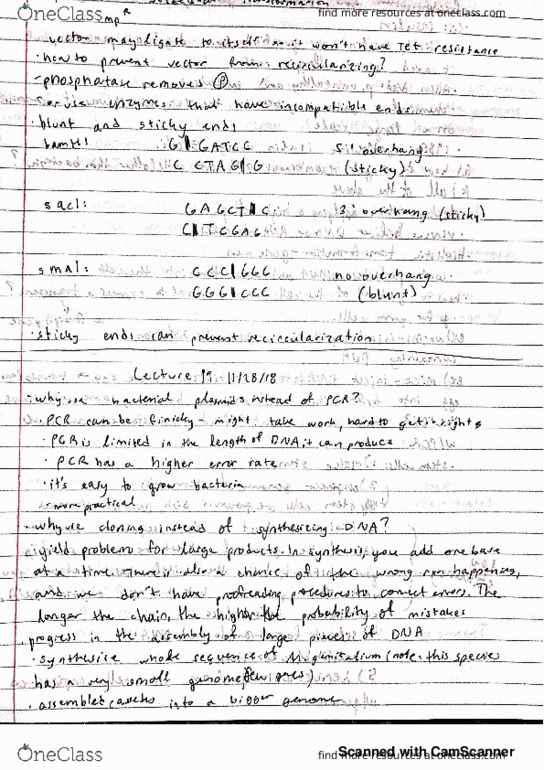 OneClass
find more resources at oneclass.com
mp R
vector may ligate to itself so it won't have Tet resistance
· how to prevent vector from recircularizing?
- phosphatase removes P
- or use enzymes that have incompatible ends
· blunt and sticky ends
bamHI G|GATCC 5' overhang
C CTAG|G (sticky)
sacI: GAGCT|C 3' overhang (sticky)
C|TCGAG
smaI: CCC|GGG no overhang
GGG|CCC (blunt)
· sticky ends can prevent recircularization
Lecture 19 11/28/18
· why use bacterial plasmids instead of PCR?
· PCR can be finicky - might take work, hard to get it right
· PCR is limited in the length of DNA it can produce
· PCR has a higher error rate
· it's easy to grow bacteria
- more practical
· why use cloning instead of synthesizing DNA?
· yield problems for large products. In synthesis, you add one base
at a time. There is also a chance of the wrong rxn happening,
and we don't have proofreading procedures to correct errors. The
longer the chain, the higher the probability of mistakes
progress in the assembly of large pieces of DNA
· synthesize whole sequence of M. genitalium (note: this species
has a very small genome, few genes)
· assembled into a bigger genome
OneClass
find more resources at oneclass.com
Scanned with CamScanner